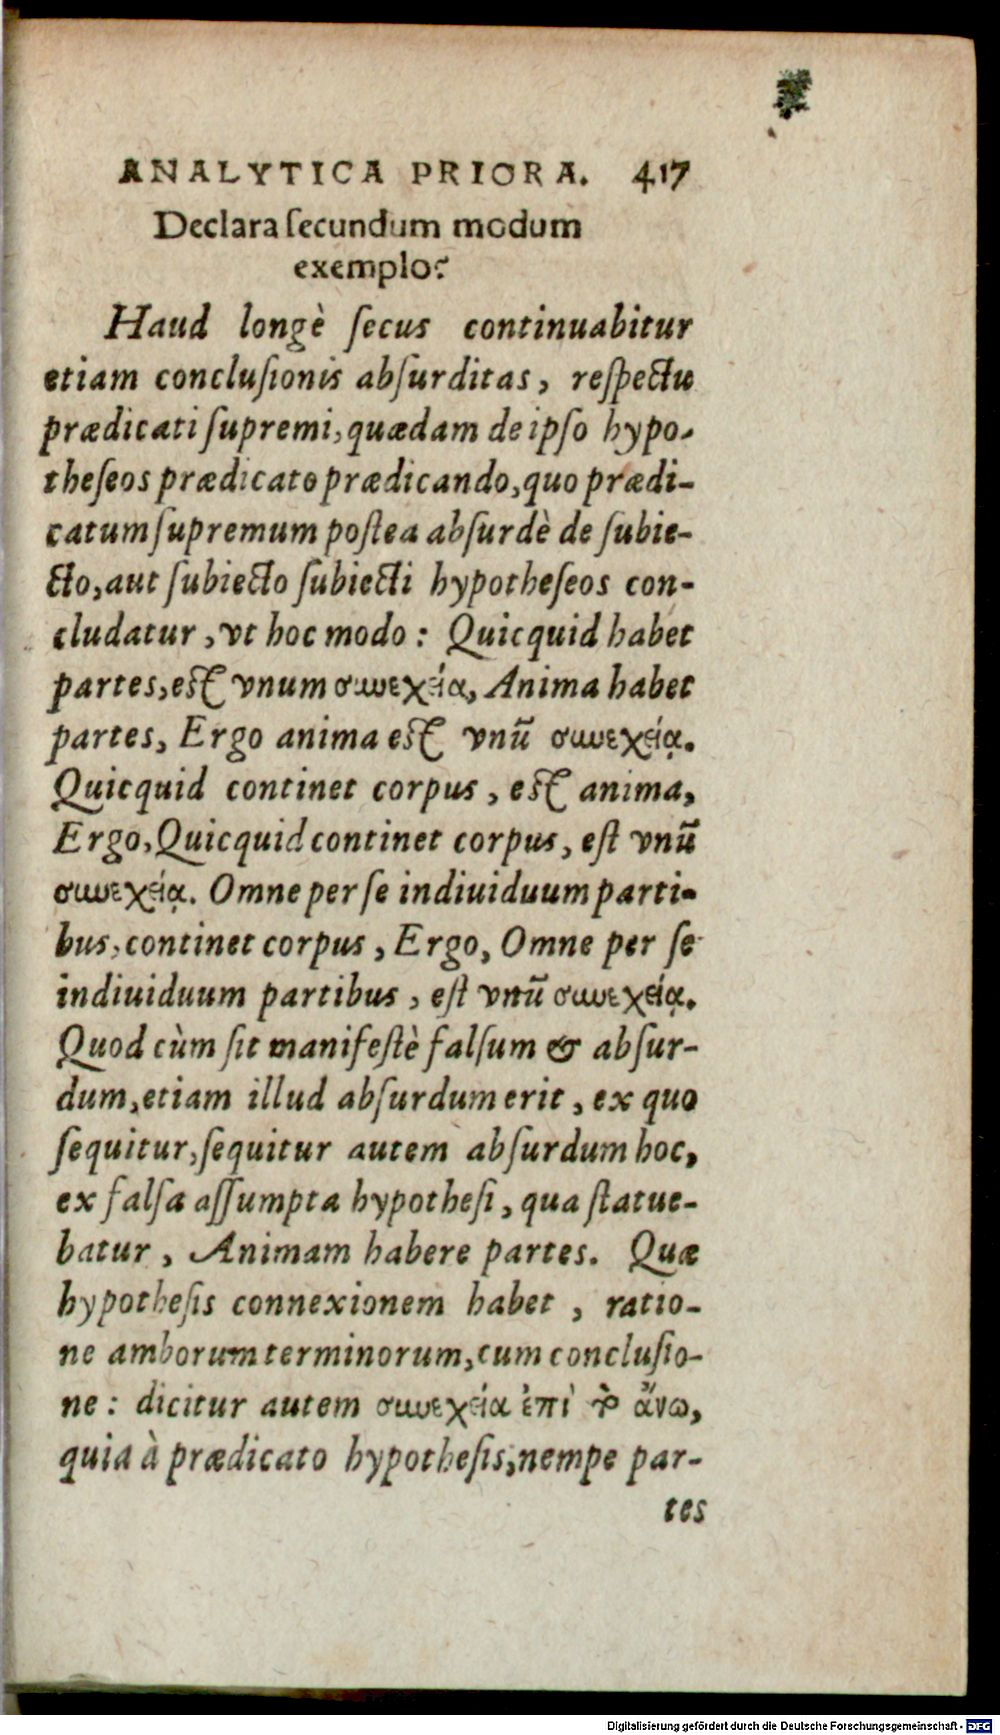 ANALYTICA PRIORA. 417
Declara ſecundum modum
exemplo?
Haud longè ſecus continuabitur
etiam concluſionis abſurditas, reſpectu
prædicati ſupremi, quædam de ipſo hypo-
theſeos prædicato prædicando, quo prædi-
catum ſupremum poſtea abſurdè de ſubie-
cto, aut ſubiecto ſubiecti hypotheſeos con-
cludatur, vt hoc modo: Quicquid habet
partes, eſt vnum συνεχείᾳ, Anima habet
partes, Ergo anima eſt vnū συνεχείᾳ.
Quicquid continet corpus, eſt anima,
Ergo, Quicquid continet corpus, eſt vnū
συνεχείᾳ. Omne per ſe indiuiduum parti-
bus, continet corpus, Ergo, Omne per ſe
indiuiduum partibus, eſt vnū συνεχείᾳ.
Quod cùm ſit manifeſtè falſum & abſur-
dum, etiam illud abſurdum erit, ex quo
ſequitur, ſequitur autem abſurdum hoc,
ex falſa aſſumpta hypotheſi, qua ſtatue-
batur, Animam habere partes. Quæ
hypotheſis connexionem habet, ratio-
ne amborum terminorum, cum concluſio-
ne: dicitur autem συνεχεία ἐπὶ τὸ ἄνω,
quia à prædicato hypotheſis, nempe par-
tes
Digitalisierung gefördert durch die Deutsche Forschungsgemeinschaft - DFG